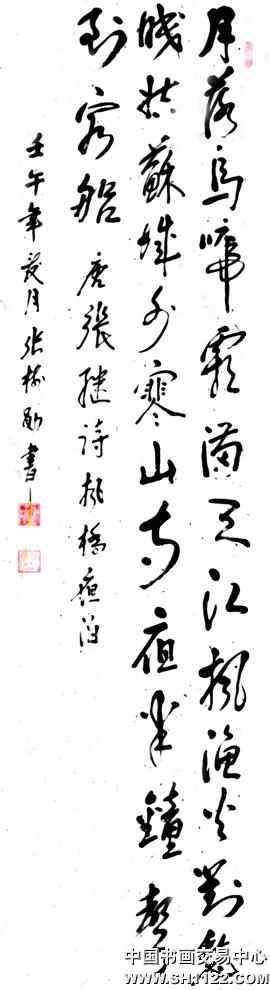 月落烏啼霜滿天江楓漁火對愁
眠姑蘇城外寒山寺夜半鐘聲
到客船
唐張繼詩楓橋夜泊
壬午年
月張
書
中国书画交易中心
www.SH1122.com